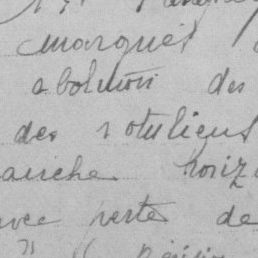 marqués
abolition des
des rotuliens
auche horiz
avec perte de